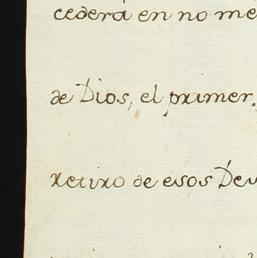 cederá en no me
de Dios, el primer
retiro de esos Dev